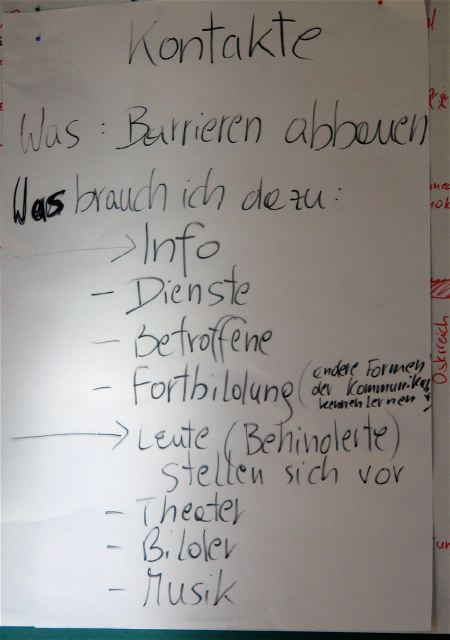 Kontakte
Was : Barrieren abbauen
Was brauch ich dazu :
→ Info
- Dienste
- Betroffene
- Fortbildung (andere Formen
der Kommunika
kennenlernen
→ Leute (Behinderte)
stellen sich vor
- Theater
- Bilder
- Musik
Österreich